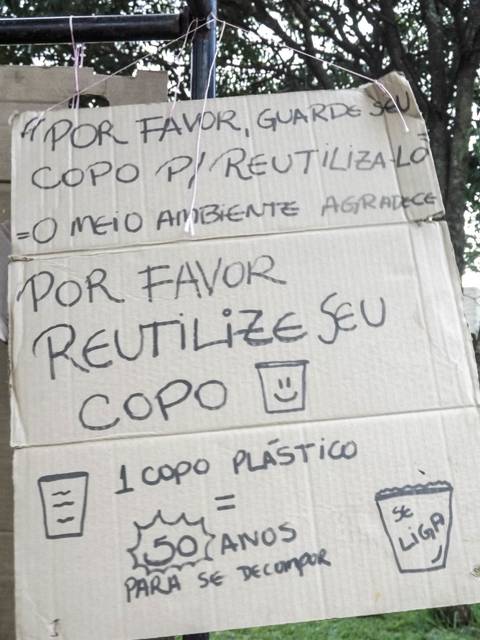 "POR FAVOR, GUARDE SEU
COPO P/ REUTILIZA-LO
=O MEIO AMBIENTE AGRADECE
POR FAVOR
REUTILIZE SEU
COPO
1 COPO PLÁSTICO
=
50 ANOS
PARA SE DECOMPOR
SE
LIGA